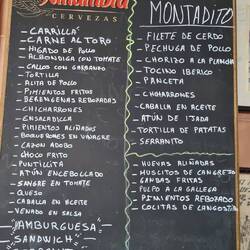 CERVEZAS
- CARRILLÁ
- CARNE AL TORO
- HIGADO DE POLLO
- ALBONDIGA CON TOMATE
- CALLOS CON GARBANZO
- TORTILLA
- ALITA DE POLLO
- PIMIENTOS FRITOS
- BERENGENAS REBOZADAS
- CHICHARRONES
- ENSALADILLA
- PIMIENTOS ALIÑADOS
- BOQUERONES EN VINAGRE
- CAZON ADOBO
- CHOCO FRITO
- PUNTILLITA
- ATÚN ENCEBOLLADO
- SANGRE EN TOMATE
- QUESO
- CABALLA EN ACEITE
- VENADO EN SALSA
HAMBURGUESA
SANDWICH
MONTADITO
- FILETE DE CERDO
- PECHUGA DE POLLO
- CHORIZO A LA PLANCHA
- TOCINO IBERICO
- PANCETA
- CHICHARRONES
- CABALLA EN ACEITE
- ATÚN DE IJADA
- TORTILLA DE PATATAS
- SERRANITO
- HUEVAS ALIÑADAS
- MUSLITOS DE CANGREJO
- GAMBAS FRITAS
- PULPO A LA GALLEGA
- PIMIENTOS REBOZADO
- COLITAS DE LANGOSTI